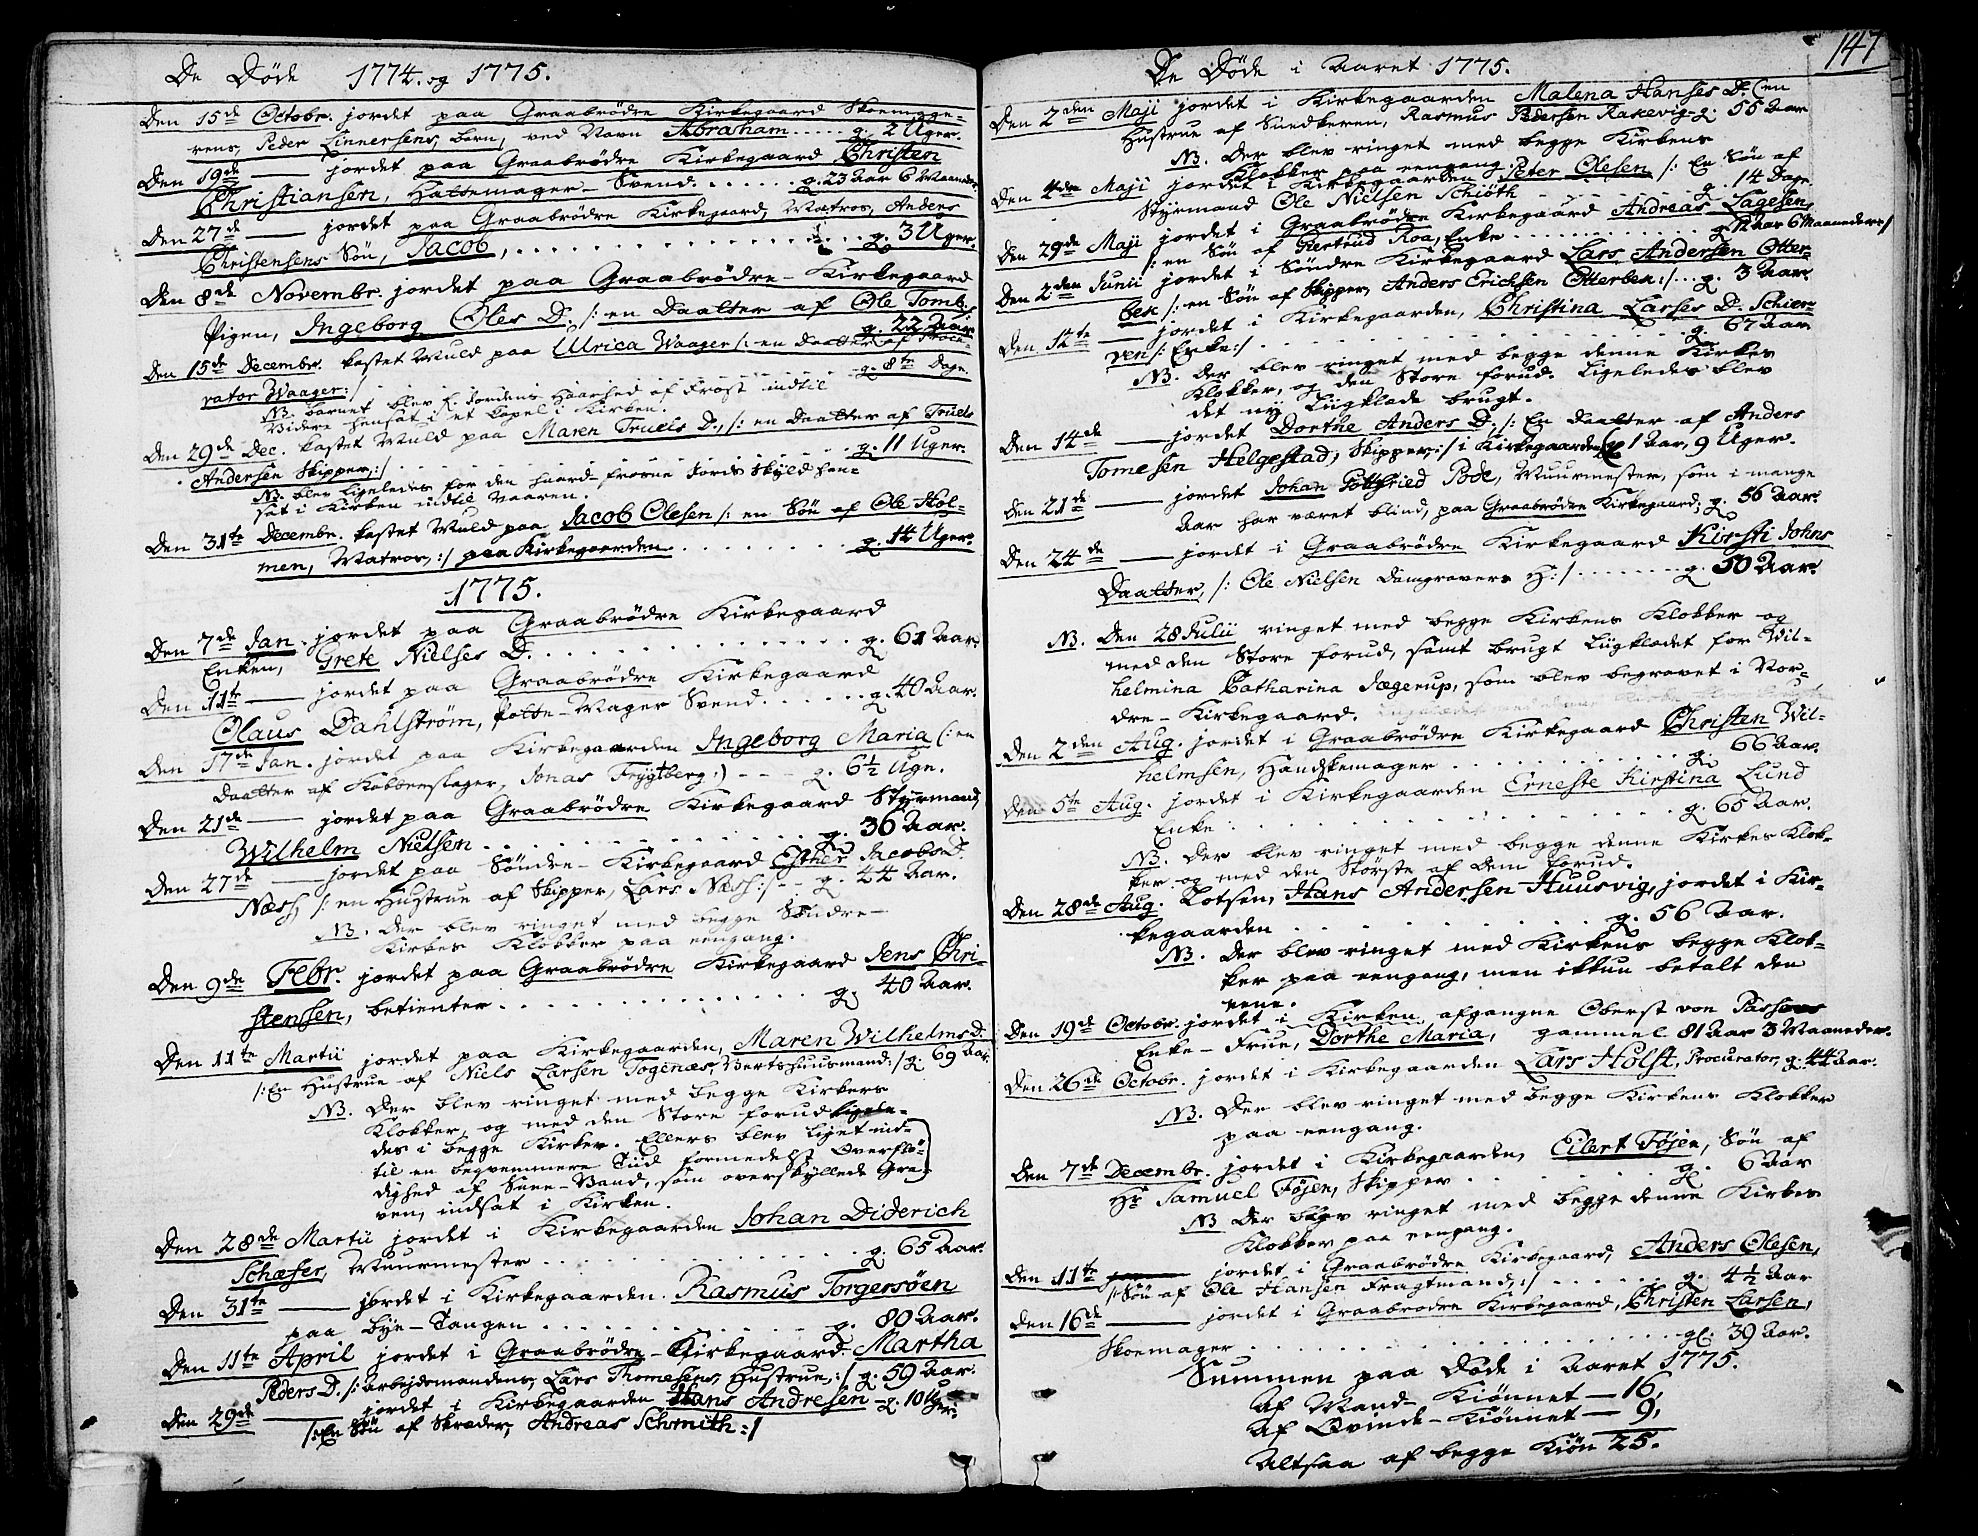 De Døde 1774. og 1775.
Den 15de Octobr. jordet paa Graabrødre Kirkegaard Skoemage-
rens, Peder Linnersens, barn, ved Navn Abraham..... g. 2 Uger.
Den 19de — jordet paa Graabrødre Kirkegaard Christen
Christiansen, Hattemager-Svend. ...... g. 23 Aar 6 Maaneder
Den 27de — jordet paa Graabrødre Kirkegaard, Matros, Anders
Christensens Søn, Jacob, ................ g. 3 Uger.
Den 8de Novembr. jordet paa Graabrødre-Kirkegaard
Pigen, Ingeborg Oles D. /: en Daatter af Ole Tomb:/
g. 22 Aar
Den 15de Decembr. kastet Muld paa Ulrica Waager /: en Daatter af Procu-
rator Waager:/ .................. g. 8te Dage.
NB. barnet blev f. Jordens Haarhed af Frost indtil
Videre hensat i et Capel i Kirken.
Den 29de Dec. kastet Muld paa Maren Truels D., /: en Daatter af Truels
Andersen Skipper,:/ .................. g. 11 Uger.
NB. blev ligeledes for den haard-frosne Jords Skyld hen-
sat i Kirken indtil Vaaren.
Den 31te Decembr. kastet Muld paa Jacob Olesen /: en Søn af Ole Hol-
men, Matros,:/ paa Kirkegaarden ........ g. 14 Uger.
1775.
Den 7de Jan. jordet paa Graabrødre Kirkegaard
Enken, Grete Nielses D. .............. g. 61 Aar.
Den 11te — jordet paa Graabrødre Kirkegaard
Olaus Dahlstrøm, Potte-Mager Svend. ..... g. 40 Aar.
Den 17de Jan. jordet paa Kirkegaarden Ingeborg Maria (: en
Daatter af Kobberslager, Jonas Frygtberg:) - - - g. 6½ Ugr.
Den 21de — jordet paa Graabrødre Kirkegaard Styrmand,
Wilhelm Nielsen .............. g. 36 Aar.
Den 27de — jordet paa Søndre-Kirkegaard Esther Jacobs D.
Næss, /: en Hustrue af Skipper, Lars Næss:/ - - g. 44 Aar.
NB. Der blev ringet med begge Søndre-
Kirkes Klokker paa eengang.
Den 9de Febr. jordet paa Graabrødre Kirkegaard Jens Chri-
stensen, betienter ............... g. 40 Aar.
Den 11te Martii jordet paa Kirkegaarden, Maren Wilhelms D.
/: En Hustrue af Niels Larsen Togenæs, Vertshuusmand:/ g. 69 Aar.
NB. Der blev ringet med begge Kirkens
Klokker, og med den Store forud ligele-
des i begge Kirker. Ellers blev liget ind-
til en beqvemmere Tiid formedelst Overflø-
dighed af Snee-Vand, som overskyllede Gra-
ven, indsat i Kirken.
Den 28de Martii jordet i Kirkegaarden Johan Diderich
Schæfer, Muurmester ............... g. 65 Aar.
Den 31te — jordet i Kirkegaarden. Rasmus Torgersøen
paa Bye-Tangen ............... g. 80 Aar.
Den 11te April jordet i Graabrødre-Kirkegaard Martha
Peders D. /: Arbejdsmandens, Lars Thomesens, Hustrue,:/ g. 59 Aar.
Den 29de — jordet i Kirkegaarden Hans Andresen - g. 10 Uger.
/: En Søn af Skræder, Andreas Schmith:/
147
De Døde i Aaret 1775.
Den 2den Maji jordet i Kirkegaarden Malena Hanses D. (en
Hustrue af Snedkeren, Rasmus Pedersen Rakevig - g. 55 Aar
NB. Der blev ringet med begge Kirkens
Klokker paa eengang.
Den 4de Maji jordet i Kirkegaarden Peter Olesen /: En Søn af
Styrmand Ole Nielsen Schiøth ....... g. 14 Dage.
Den 29de Maji jordet i Graabrødre Kirkegaard Andreas Tagesen,
/: en Søn af Giertrud Roa, Enke ............ g. 12 Aar 6 Maaneder:/
Den 2den Junii jordet i Søndre Kirkegaard Lars Andersen Otter-
bek /: en Søn af Skipper, Anders Erichsen Otterbek:/ .. g. 3 Aar.
Den 12te — jordet i Kirkegaarden, Christina Larses D. Schier-
ven /: Enke:/ .................. g. 67 Aar
NB. Der blev ringet med begge denne Kirkes
Klokker, og den Store forud. Ligeledes blev
det ny Liigklæde brugt.
Den 14de — jordet Dorthe Anders D. /: En Daatter af Anders
Tomesen Helgestad, Skipper:/ i Kirkegaarden g. 1 Aar, 9 Uger.
Den 21de — jordet Johan Gottfried Pode, Muurmester, som i mange
Aar har været blind, paa Graabrødre Kirkegaard; g. 56 Aar.
Den 24de — jordet i Graabrødre Kirkegaard Kirsti Johns
Daatter, /: Ole Nielsen Damgravers H:/ ....... g. 50 Aar.
NB. Den 28 Julii ringet med begge Kirkens Klokker og
med den Store forud, samt brugt Liigklædet for Wil-
helmina Catharina Jægerup, som blev begravet i Nor-
dre-Kirkegaard.
Den 2den Aug. jordet i Graabrødre Kirkegaard Christen Wil-
helmsen, Handskemager ............ g. 66 Aar.
Den 5te Aug. jordet i Kirkegaarden Erneste Kirstina Lund
Enke .................. g. 65 Aar.
NB. Der blev ringet med begge denne Kirkes Klok-
ker og med den Største af Dem forud.
Den 28de Aug. Lotsen, Hans Andersen Huusvig, jordet i Kir-
kegaarden ............... g. 56 Aar.
NB. Der blev ringet med Kirkens begge Klok-
ker paa eengang, men ikkun betalt den
eene.
Den 19de Octobr. jordet i Kirken afgangne Oberst von Passows
Enke-Frue, Dorthe Maria, gammel 81 Aar 3 Maaneder.
Den 26de Octobr. jordet i Kirkegaarden Lars Holst, Procurator, g. 44 Aar.
NB. Der blev ringet med begge Kirkens Klokker
paa eengang.
Den 7de Decembr. jordet i Kirkegaarden, Eilert Føjen, Søn af
Hr Samuel Føjen, Skipper ........ g. 6 Aar
NB Der blev ringet med begge denne Kirkes
Klokker paa eengang.
Den 11te — jordet i Graabrødre Kirkegaard, Anders Olesen,
/: Søn af Ole Hansen Fragtmand,:/ ........ g. 4½ Aar
Den 16de — jordet i Graabrødre Kirkegaard, Christen Larsen,
Skoemager .................. gl. 39 Aar.
Summen paa Døde i Aaret 1775.
Af Mand-Kiønnet — 16,
Af Qvinde-Kiønnet — 9,
Altsaa af begge Kiøn 25.